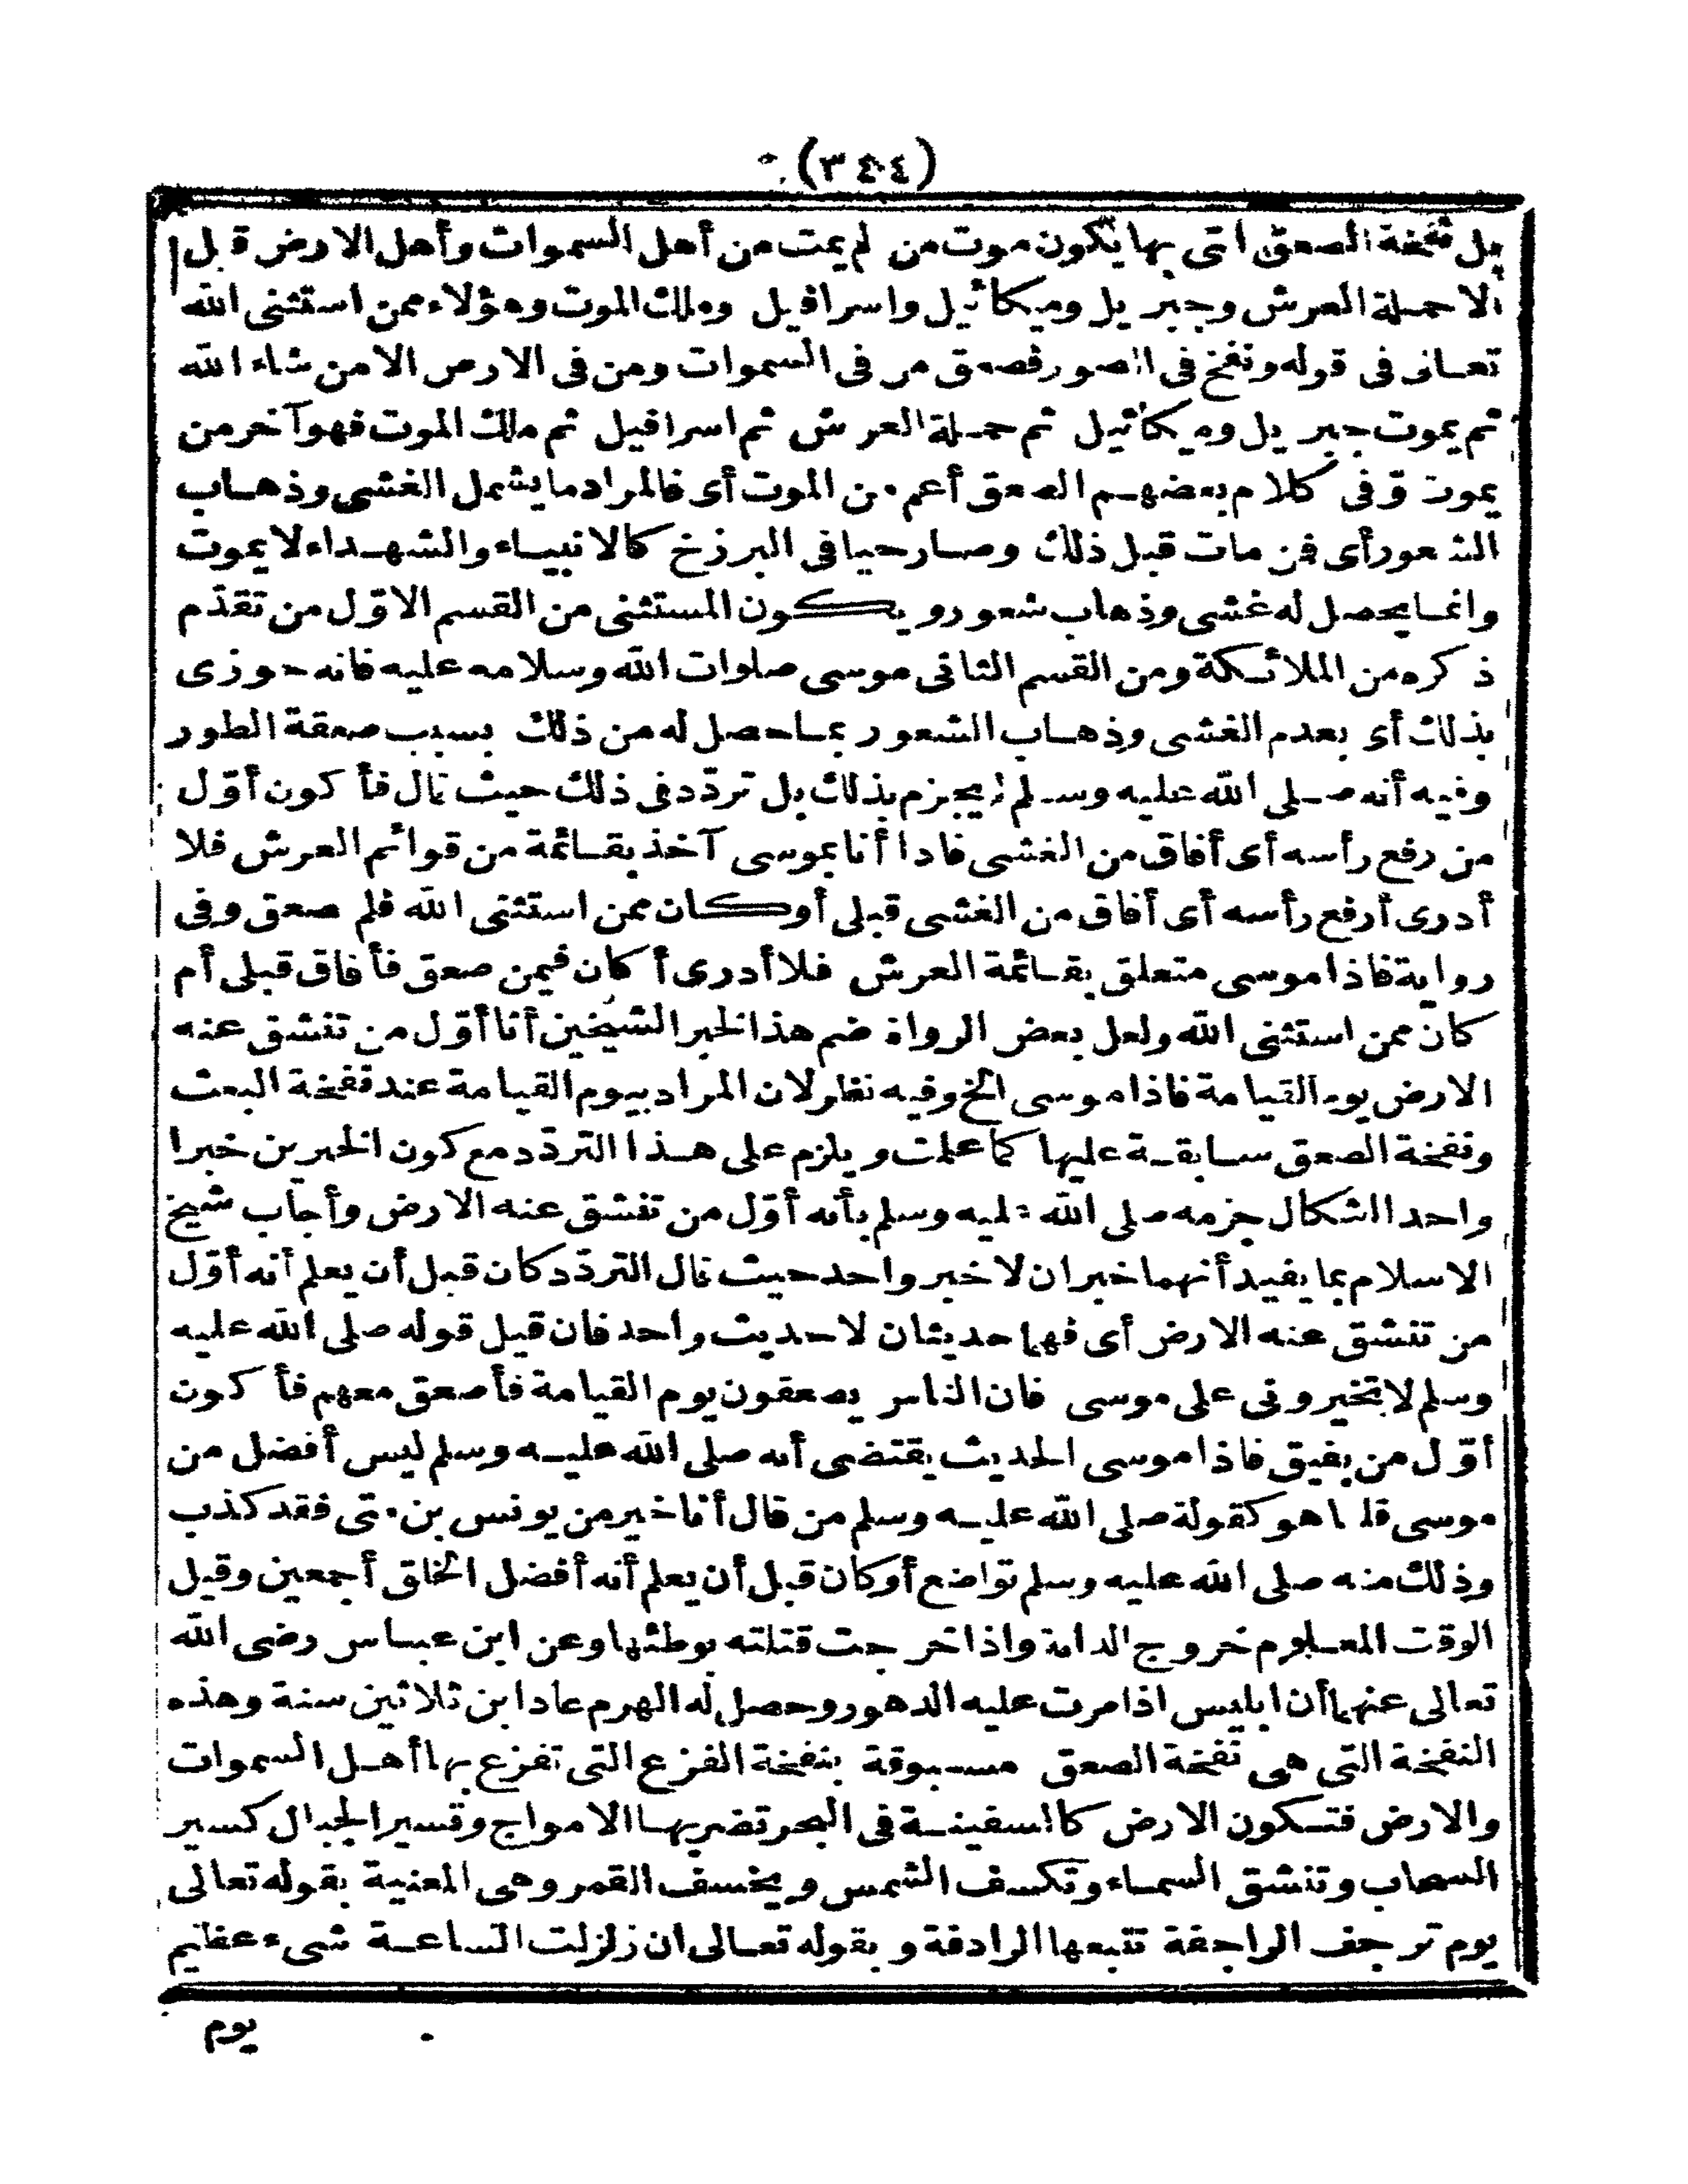 (٣٤٤)
بل نفخة الصعق التى بها يكون موت من لم يمت من أهل السموات وأهل الارض قبل
الا حملة العرش وجبريل وميكائيل واسرافيل وملك الموت وهؤلاء ممن استثنى الله
تعالى فى قوله ونفخ فى الصور فصعق من فى السموات ومن فى الارض الا من شاء الله
ثم يموت جبريل وميكائيل ثم حملة العرش ثم اسرافيل ثم ملك الموت فهو آخر من
يموت وفى كلام بعضهم الصعق أعم من الموت أى فالمراد ما يشمل الغشى وذهاب
الشعور أى فمن مات قبل ذلك وصار حيا فى البرزخ كالانبياء والشهداء لا يموت
وانما يحصل له غشى وذهاب شعور ويكون المستثنى من القسم الاوّل من تقدّم
ذكره من الملائكة ومن القسم الثانى موسى صلوات الله وسلامه عليه فانه حوزى
بذلك أى بعدم الغشى وذهاب الشعور بما حصل له من ذلك بسبب صعقة الطور
وفيه أنه صلى الله عليه وسلم لم يجزم بذلك بل تردّد فى ذلك حيث قال فأكون أوّل
من رفع رأسه أى أفاق من الغشى فاذا أنا بموسى آخذ بقائمة من قوائم العرش فلا
أدرى أرفع رأسه أى أفاق من الغشى قبلى أو كان ممن استثنى الله فلم صعق وفى
رواية فاذا موسى متعلق بقائمة العرش فلا أدرى أكان فيمن صعق فأفاق قبلى أم
كان ممن استثنى الله ولعل بعض الرواة ضم هذا لخبر الشيخين أنا أوّل من تنشق عنه
الارض يوم القيامة فاذا موسى الخ وفيه نظر لان المراد بيوم القيامة عند نفخة البعث
ونفخة الصعق سابقة عليها كما علمت ويلزم على هذا التردّد مع كون الخبرين خبرا
واحد الشكال جزمه صلى الله عليه وسلم بأنه أوّل من تنشق عنه الارض وأجاب شيخ
الاسلام بما يفيد أنهما خبران لا خبر واحد حيث قال التردّد كان قبل أن يعلم أنه أوّل
من تنشق عنه الارض أى فهما حديثان لا حديث واحد فان قيل قوله صلى الله عليه
وسلم لا تخيرونى على موسى فان الناس يصعقون يوم القيامة فأصعق معهم فأكون
أوّل من يفيق فاذا موسى الحديث يقتضى أنه صلى الله عليه وسلم ليس أفضل من
موسى قلنا هو كقوله صلى الله عليه وسلم من قال أنا خير من يونس بن متى فقد كذب
وذلك منه صلى الله عليه وسلم تواضع أو كان قبل أن يعلم أنه أفضل الخلق أجمعين وقيل
الوقت المعلوم خروج الدابة واذا خرجت قتلته بوطئها وعن ابن عباس رضى الله
تعالى عنهما أن ابليس اذا مرت عليه الدهور وحصل له الهرم عاد ابن ثلاثين سنة وهذه
النفخة التى هى نفخة الصعق مسبوقة بنفخة الفزع التى تفزع بها أهل السموات
والارض فتكون الارض كالسفينة فى البحر تضربها الامواج وتسير الجبال كسير
السحاب وتنشق السماء وتكسف الشمس ويخسف القمر وهى المعنية بقوله تعالى
يوم ترجف الراجفة تتبعها الرادفة وبقوله تعالى ان زلزلت الساعة شىء عظيم
يوم